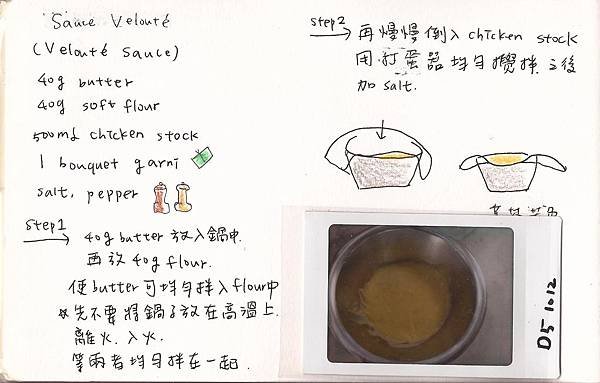 Sauce Velouté
(Velouté Sauce)
40g butter
40g soft flour
500ml chicken stock
1 bouquet garni
salt, pepper
step1
40g butter 放入鍋中.
再放 40g flour.
使butter可均勻拌入flour中
先不要將鍋子放在高溫上.
離火. 入火.
等兩者均勻拌在一起.
step2
再慢慢倒入 chicken stock
用打蛋器均勻攪拌. 之後
加 salt.
D5 10.12